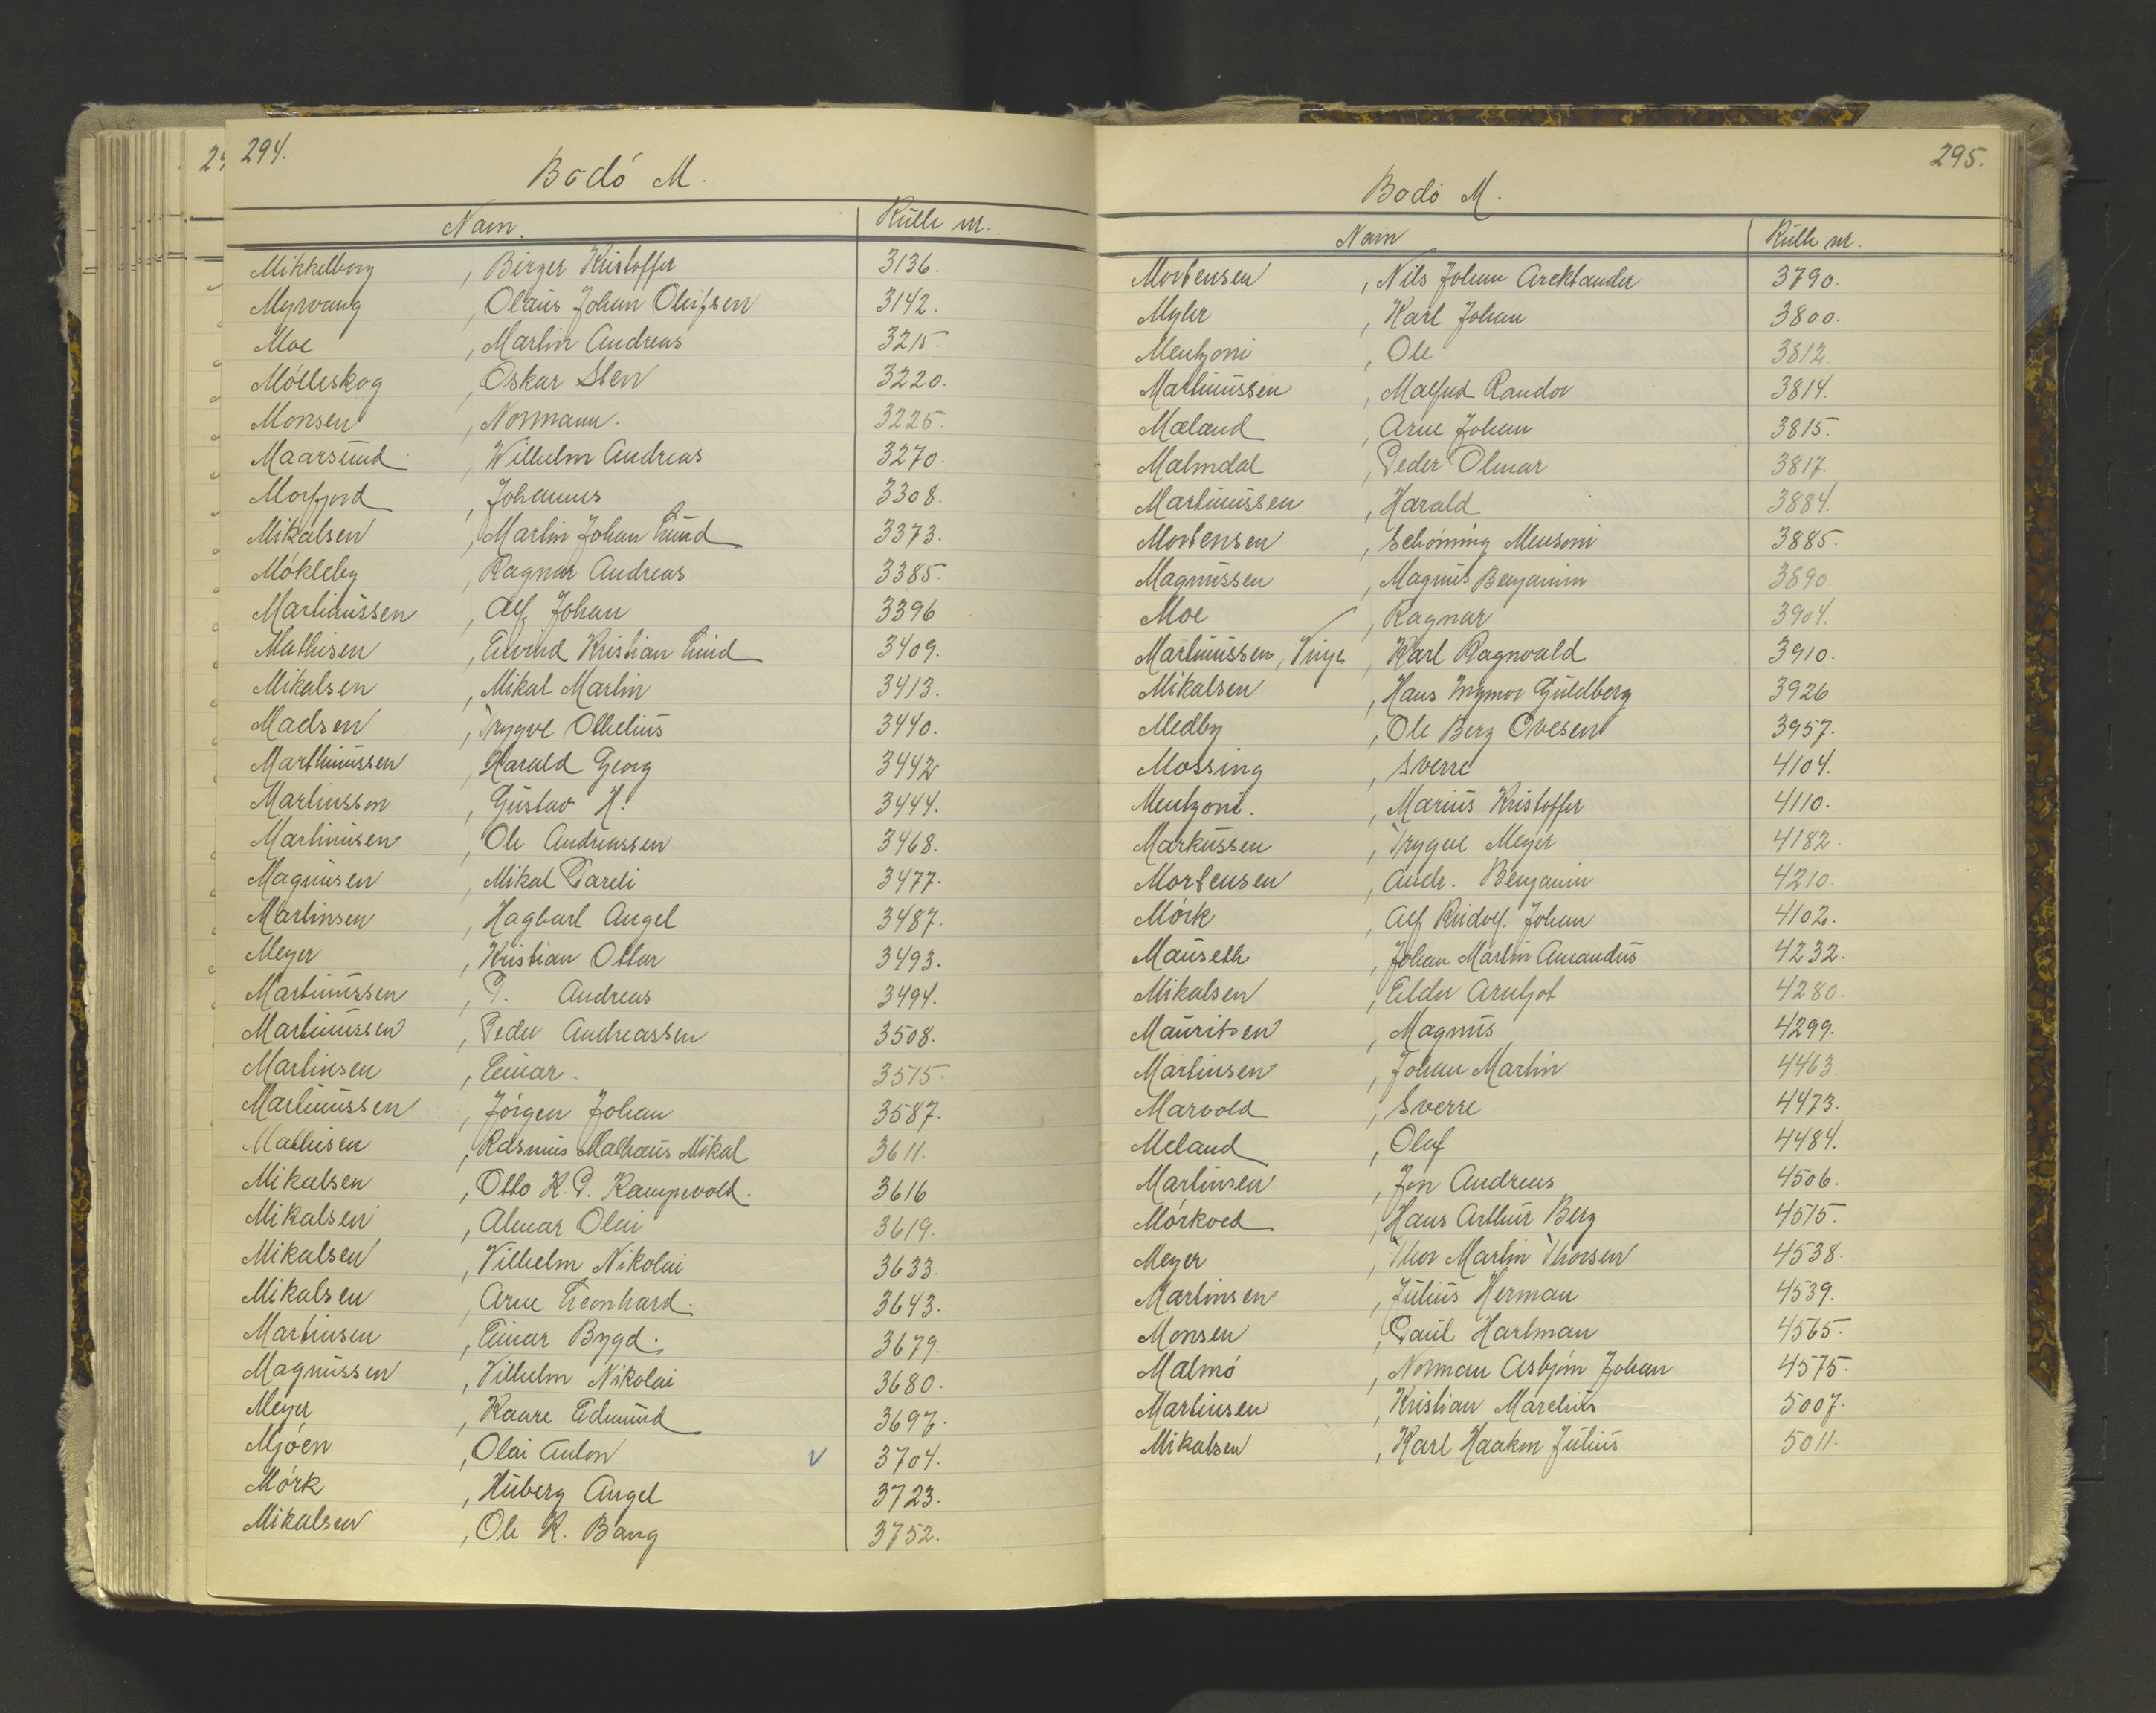 294.
Bodó M.
Navn. Rulle nr.
Mikkelborg, Birger Kristoffer 3136.
Myrvang, Olaus Johan Olufsen 3142.
Moe, Martin Andreas 3215.
Mólleskog, Oskar Sten 3220.
Monsen, Normann. 3225.
Maarsund, Wilhelm Andreas 3270.
Morfjord, Johannes 3308.
Mikalsen, Martin Johan Lund 3373.
Mókleby, Ragnar Andreas 3385.
Martinussen, Alf Johan 3396
Mathisen, Eivind Kristian Lund 3409.
Mikalsen, Mikal Martin 3413.
Madsen, Trygve Othelius 3440.
Marthinussen, Harald Georg 3442
Martinsson, Gustav H. 3444.
Martinusen, Ole Andreassen 3468.
Magnusen, Mikal Pareli 3477.
Martinsen, Hagbart Angel 3487.
Meyer, Kristian Ottar 3493.
Martinussen, P. Andreas 3494.
Martinussen, Peder Andreassen 3508.
Martinsen, Einar 3575.
Martinussen, Jörgen Johan 3587.
Mathisen, Rasmus Mathæus Mikal 3611.
Mikalsen, Otto K. P. Rampvold. 3616
Mikalsen, Almar Olai 3619.
Mikalsen, Vilhelm Nikolai 3633.
Mikalsen, Arne Leonhard. 3643.
Martinsen, Einar Bygd. 3679.
Magnussen, Vilhelm Nikolai 3680.
Meyer, Kaare Edmund 3697.
Mjóen, Olai Anton v 3704.
Mórk, Huberg Angel 3723.
Mikalsen, Ole K. Bang 3752.
295.
Bodó M.
Navn Rulle nr.
Mortensen, Nils Johan Arcktander 3790.
Myhr, Karl Johan 3800.
Mentzoni, Ole 3812.
Martinussen, Malfred Randor 3814.
Mæland, Arne Johan 3815.
Malmdal, Peder Olmar 3817.
Martinussen, Harald 3884.
Mortensen, Schönning Mensoni 3885.
Magnussen, Magnus Benjamin 3890.
Moe, Ragnar 3904.
Martinussen, Vinje, Karl Ragnvald 3910.
Mikalsen, Hans Ingmar Guldberg 3926
Medby, Ole Berg Ovesen 3957.
Mossing, Sverre 4104.
Mentzoni., Marius Kristoffer 4110.
Markussen, Trygve Meyer 4182.
Mortensen, Andr. Benjamin 4210.
Mórk, Alf Rudolf. Johan 4102.
Mauseth, Johan Martin Amandus 4232.
Mikalsen, Eldar Arntjot 4280.
Mauritsen, Magnus 4299.
Martinsen, Johan Martin 4463.
Marvold, Sverre 4473.
Meland, Olaf 4484.
Martinsen, Jon Andreas 4506.
Mórkved, Hans Arthur Berg 4515.
Meyer, Thor Martin Thorsen 4538.
Martinsen, Julius Herman 4539.
Monsen, Paul Hartman 4565.
Malmó, Norman Asbjörn Johan 4575.
Martinsen, Kristian Marelius 5007.
Mikalsen, Karl Haakon Julius 5011.